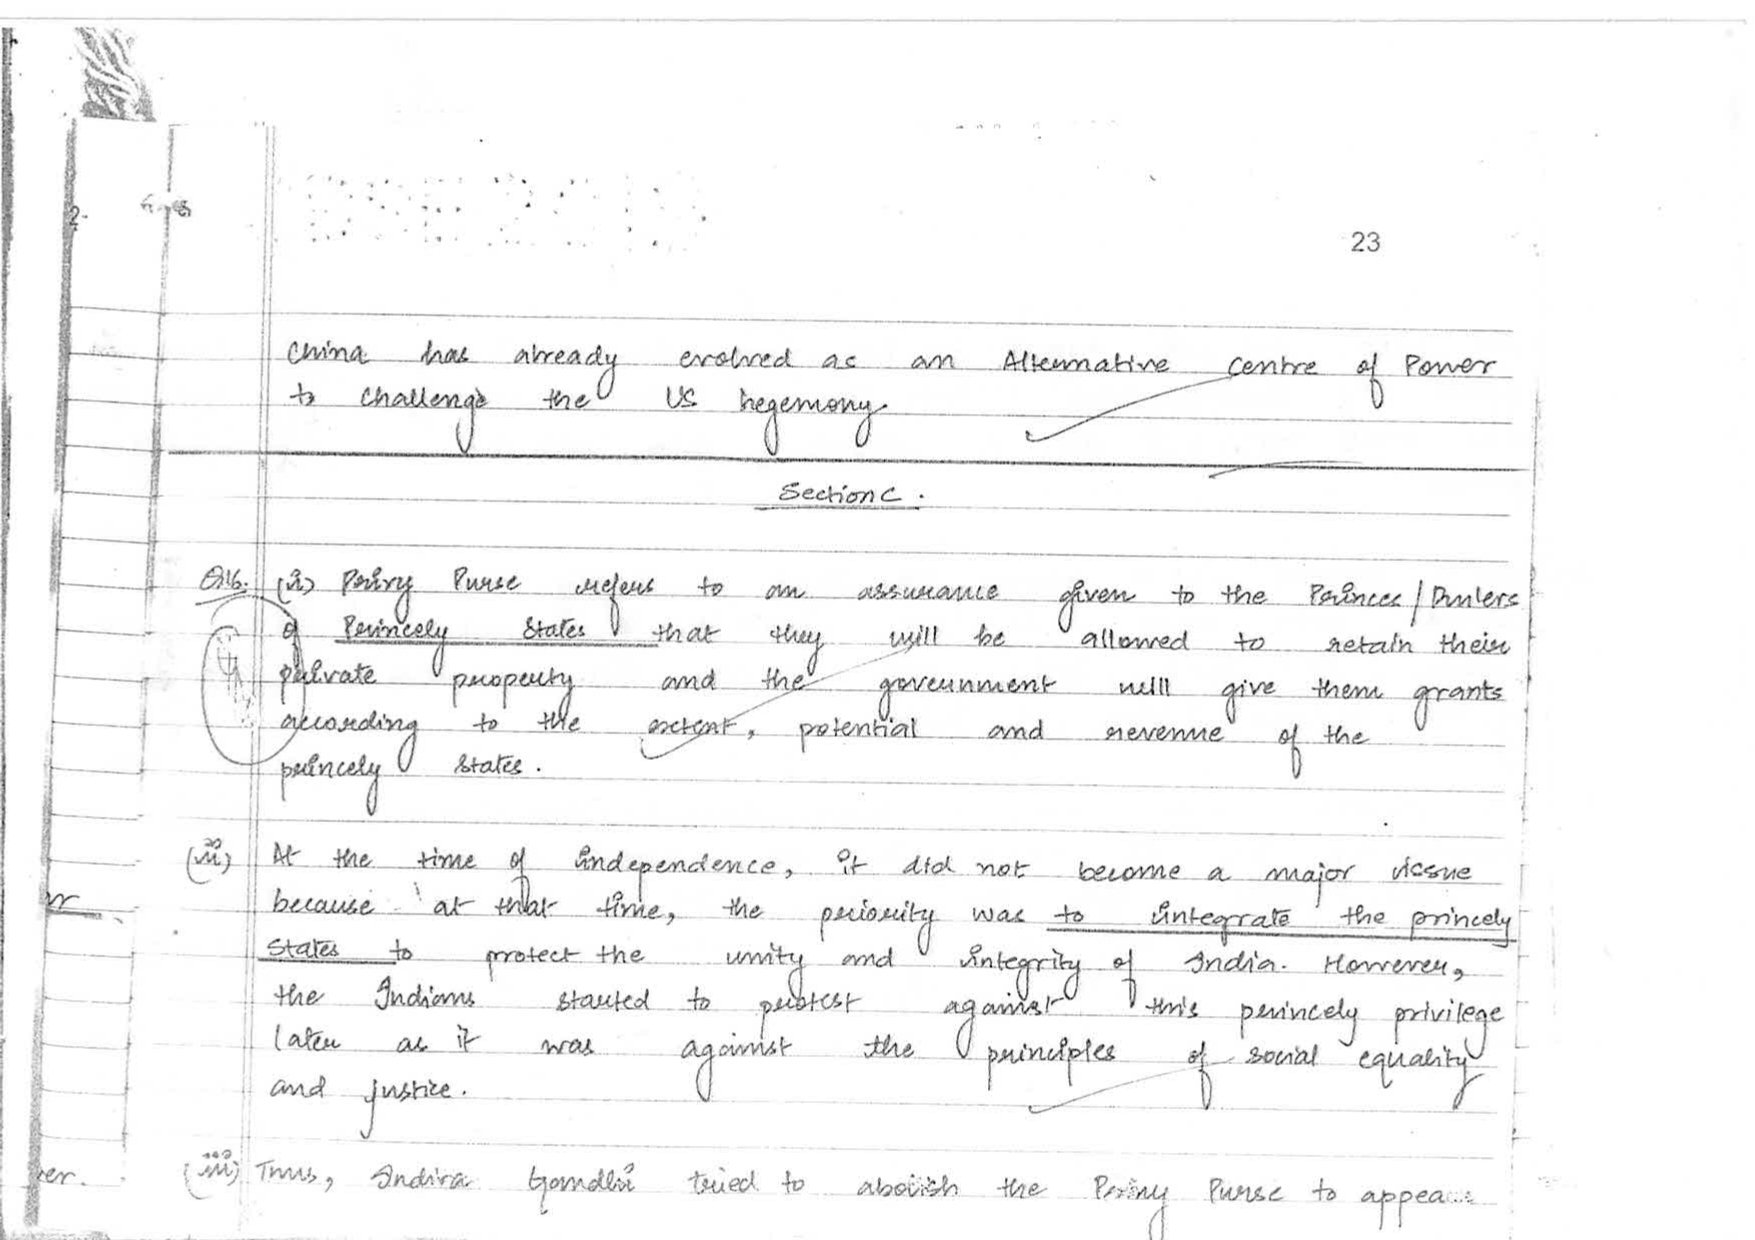 23
China has already evolved as an Alternative Centre of Power
to challenge the US hegemony.
Section C.
Q16. (i) Privy Purse refers to an assurance given to the Princes / Rulers
of Princely States that they will be allowed to retain their
private property and the government will give them grants
according to the extent, potential and revenue of the
princely states.
(ii) At the time of independence, it did not become a major issue
because at that time, the priority was to integrate the princely
states to protect the unity and integrity of India. However,
the Indians started to protest against this princely privilege
later as it was against the principles of social equality
and justice.
(iii) Thus, Indira Gandhi tried to abolish the Privy Purse to